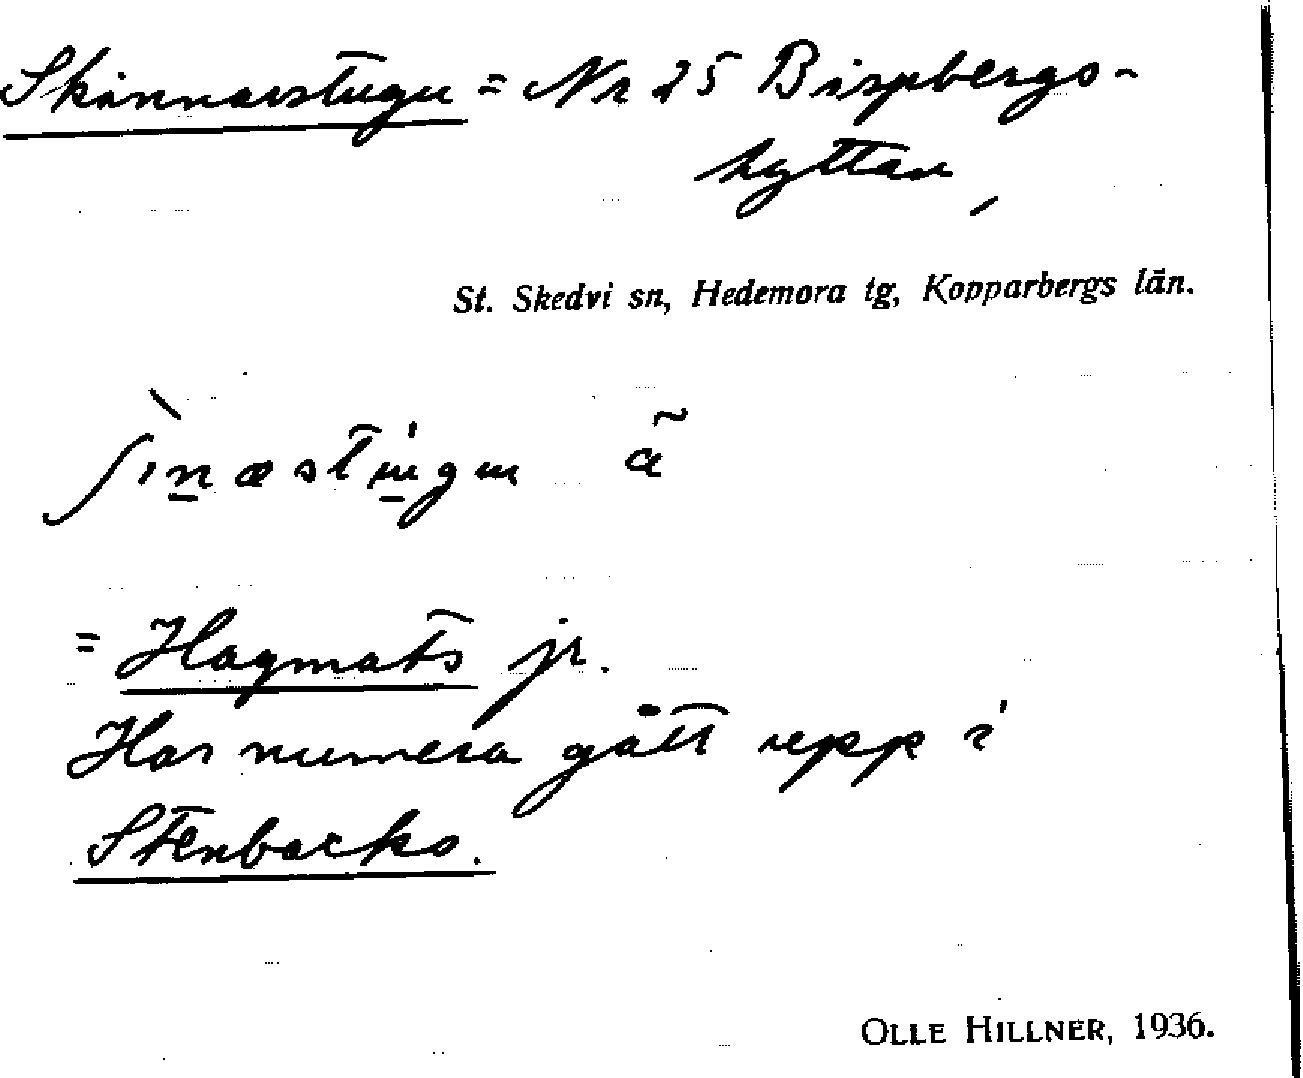 Skinnarstugu = Nr 25 Bispbergs-
hyttan,
St. Skedvi sn, Hedemora tg, Kopparbergs län.
ʃìnæstúgu ã
= Hagmats jr.
Har numera gått upp i
Stenbacko.
OLLE HILLNER, 1936.